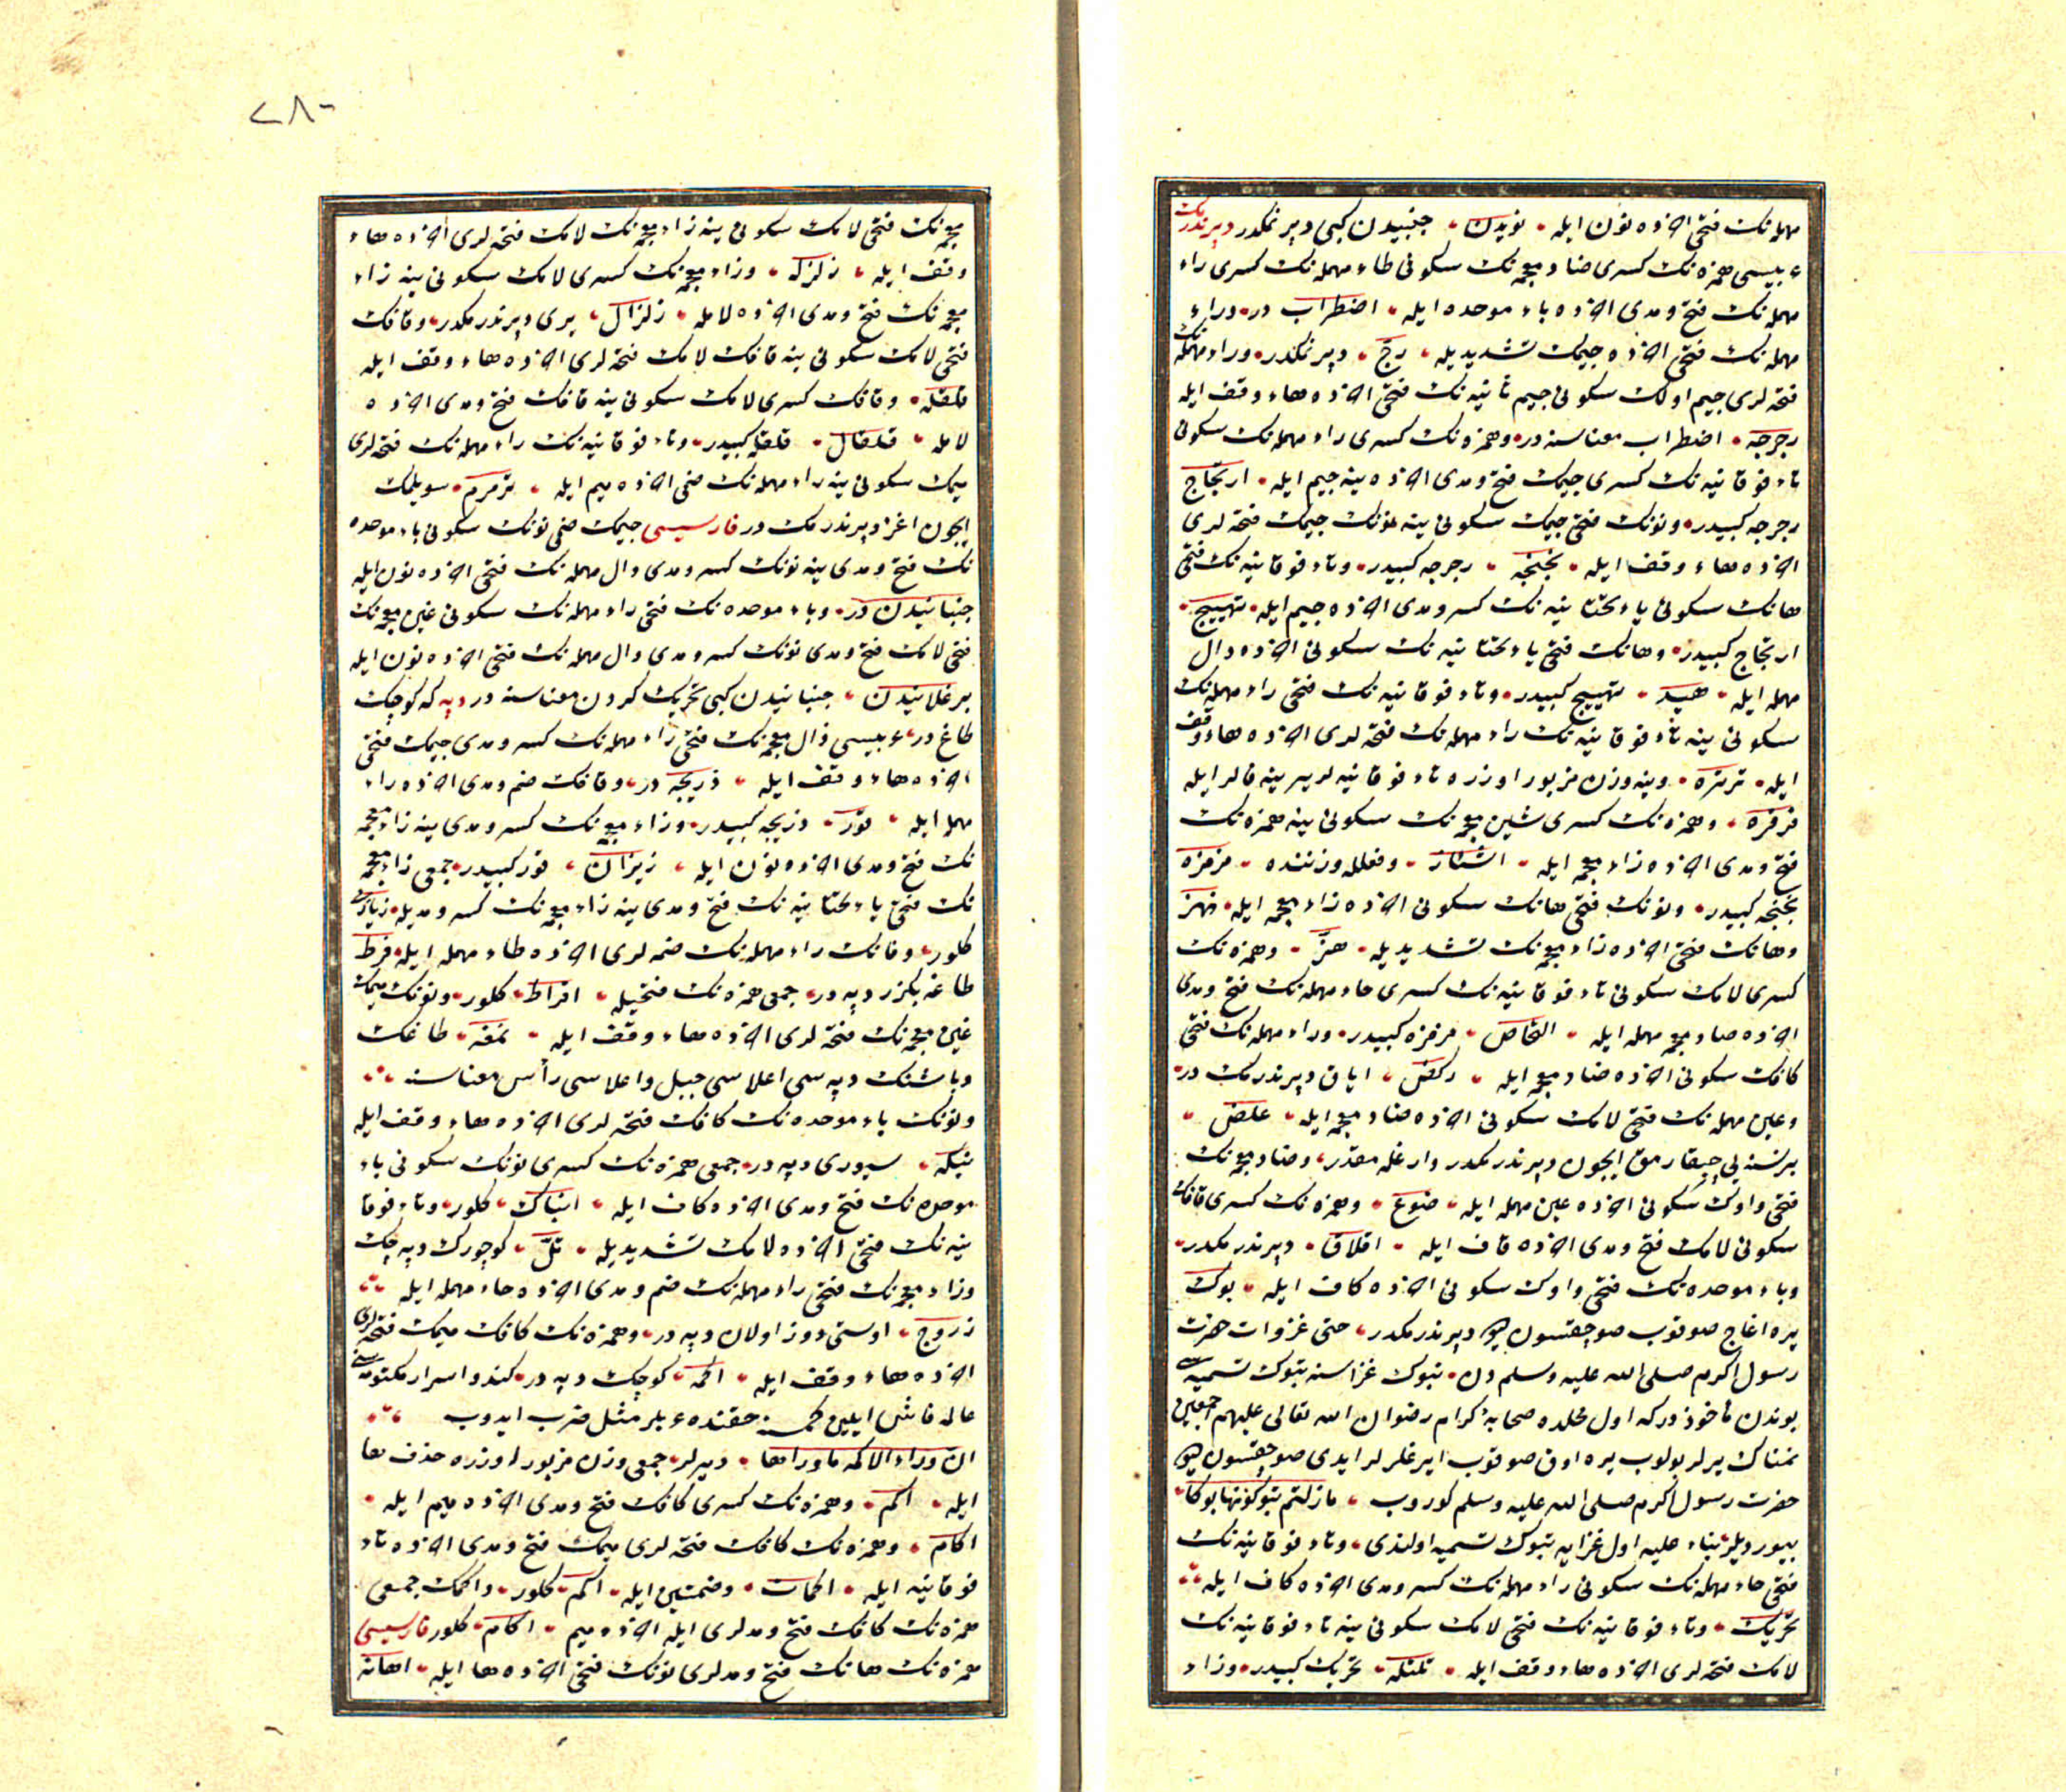 مهمله نك فتحی آخرده نون ایله نویدن جنبیدن كبی دپرنمكدر دپرندرمك
عربیسی همزه نك كسری ضاد معجمه نك سكونی طاء مهمله نك كسری راء
مهمله نك فتح و مدی آخرده باء موحده ایله اضطراب در وراء
مهمله نك فتحی آخرده جیمك تشدیدیله رجّ دپرنمكدر وراء مهمله نك
فتحه لری جیم اولك سكونی جیم ثانیه نك فتحی آخرده هاء وقف ایله
رجرجه اضطراب معناسنه در وهمزه نك كسری راء مهمله نك سكونی
تاء فوقانیه نك كسری جیمك فتح و مدی آخرده ینه جیم ایله ارتجاج
رجرجه كبیدر ونونك فتحی جیمك سكونی ینه نونك جیمك فتحه لری
آخرده هاء وقف ایله نجنجه رجرجه كبیدر وتاء فوقانیه نك فتحی
هانك سكونی یاء تحتانیه نك كسر و مدی آخرده جیم ایله تهییج
ارتجاج كبیدر وهانك فتحی یاء تحتانیه نك سكونی آخرده دال
مهمله ایله هید تهییج كبیدر وتاء فوقانیه نك فتحی راء مهمله نك
سكونی ینه تاء فوقانیه نك راء مهمله نك فتحه لری آخرده هاء وقف
ایله ترتره وینه وزن مزبور اوزره تاء فوقانیه لر یرینه فالر ایله
فرفره وهمزه نك كسری شین معجمه نك سكونی ینه همزه نك
فتح و مدی آخرده زاء معجمه ایله اشئاز وفعلله وزننده مزمزه
نجنجه كبیدر ونونك فتحی هانك سكونی آخرده زاء معجمه ایله نهز
وهانك فتحی آخرده زاء معجمه نك تشدیدیله هزّ وهمزه نك
كسری لامك سكونی تاء فوقانیه نك كسری حاء مهمله نك فتح و مدی
آخرده صاد مهمله ایله التحاص مزمزه كبیدر وراء مهمله نك فتحی
كافك سكونی آخرده ضاد معجمه ایله ركض ایاق دپرندرمك در
وعین مهمله نك فتحی لامك سكونی آخرده ضاد معجمه ایله علض
برنسنه یی چیقارمق ایچون دپرندرمكدر وضاد معجمه نك
فتحی واوك سكونی آخرده عین مهمله ایله ضوع وهمزه نك كسری قافك
سكونی لامك فتح و مدی آخرده قاف ایله اقلاق دپرندرمكدر
وباء موحده نك فتحی واوك سكونی آخرده كاف ایله بوك
یره اغاج صوقوب صو چقسون دیو دپرندرمكدر حتی غزوات حضرت
رسول اكرم صلی الله علیه وسلم دن تبوك غزاسنه تبوك تسمیه سی
بوندن مأخوذدر كه اول محلده صحابهٔ كرام رضوان الله تعالی علیهم اجمعین
نمناك یرلر بولوب یره اوق صوقوب ایرغلرلر ایدی صو چقسون دیو
حضرت رسول اكرم صلی الله علیه وسلم كوروب مازلتم تبوكونها بوكا
بیوردیلر بناء علیه اول غزایه تبوك تسمیه اولندی وتاء فوقانیه نك
فتحی حاء مهمله نك سكونی راء مهمله نك كسر و مدی آخرده كاف ایله
تحریك وتاء فوقانیه نك فتحی لامك سكونی ینه تاء فوقانیه نك
لامك فتحه لری آخرده هاء وقف ایله تلتله تحریك كبیدر وزاء
٢٨٠
معجمه نك فتحی لامك سكونی ینه زاء معجمه نك لامك فتحه لری آخرده هاء
وقف ایله زلزله وزاء معجمه نك كسری لامك سكونی ینه زاء
معجمه نك فتح و مدی آخرده لامله زلزال یری دپرندرمكدر وقافك
فتحی لامك سكونی ینه قافك لامك فتحه لری آخرده هاء وقف ایله
قلقله وقافك كسری لامك سكونی ینه قافك فتح و مدی آخرده
لامله قلقال قلقله كبیدر وتاء فوقانیه نك راء مهمله نك فتحه لری
میمك سكونی ینه راء مهمله نك ضمی آخرده میم ایله ترمرم سویلمك
ایچون اغز دپرندرمك در فارسیسی جیمك ضمی نونك سكونی باء موحده
نك فتح و مدی ینه نونك كسر و مدی دال مهمله نك فتحی آخرده نون ایله
جنبانیدن در وباء موحده نك فتحی راء مهمله نك سكونی غین معجمه نك
فتحی لامك فتح و مدی نونك كسر و مدی دال مهمله نك فتحی آخرده نون ایله
برغلانیدن جنبانیدن كبی تحریك كردن معناسنه در دپه كه كوچك
طاغ در عربیسی ذال معجمه نك فتحی راء مهمله نك كسر و مدی جیمك فتحی
آخرده هاء وقف ایله ذریجه در وقافك ضم و مدی آخرده راء
مهمله ایله قور ذریجه كبیدر وزاء معجمه نك كسر و مدی ینه زاء معجمه
نك فتح و مدی آخرده نون ایله زیزان قور كبیدر جمعی زاء معجمه
نك فتحی یاء تحتانیه نك فتح و مدی ینه زاء معجمه نك كسر و مدیله زیازی
كلور وفانك راء مهمله نك ضمه لری آخرده طاء مهمله ایله فرط
طاغه بكزر دپه در جمعی همزه نك فتحیله افراط كلور ونونك میمك
غین معجمه نك فتحه لری آخرده هاء وقف ایله نمغه طاغك
وباشنك دپه سی اعلاسی جبل واعلاسی رأس معناسنه
ونونك باء موحده نك كافك فتحه لری آخرده هاء وقف ایله
نبكه سیوری دپه در جمعی همزه نك كسری نونك سكونی باء
موحده نك فتح و مدی آخرده كاف ایله انباك كلور وتاء فوقا
نیه نك فتحی آخرده لامك تشدیدیله تلّ كوچورك دپه جك
وزاء معجمه نك فتحی راء مهمله نك ضم و مدی آخرده حاء مهمله ایله
زروح اوستی دوز اولان دپه در وهمزه نك كافك میمك فتحه لری
آخرده هاء وقف ایله اكمه كوچك دپه در كندو اسرار مكتومه سنی
عالمه فاش ایلین كمسنه حقنده عربلر مثل ضرب ایدوب
ان وراء الاكمه ماوراءها دیرلر جمعی وزن مزبور اوزره حذف ها
ایله اكم وهمزه نك كسری كافك فتح و مدی آخرده میم ایله
اكام وهمزه نك كافك فتحه لری میمك فتح و مدی آخرده تاء
فوقانیه ایله اكمات وضمتین ایله اكم كلور واكمك جمعی
همزه نك كافك فتح و مدلری ایله آخرده میم آكام كلور فارسیسی
همزه نك هانك فتح و مدلری نونك فتحی آخرده ها ایله آهانه